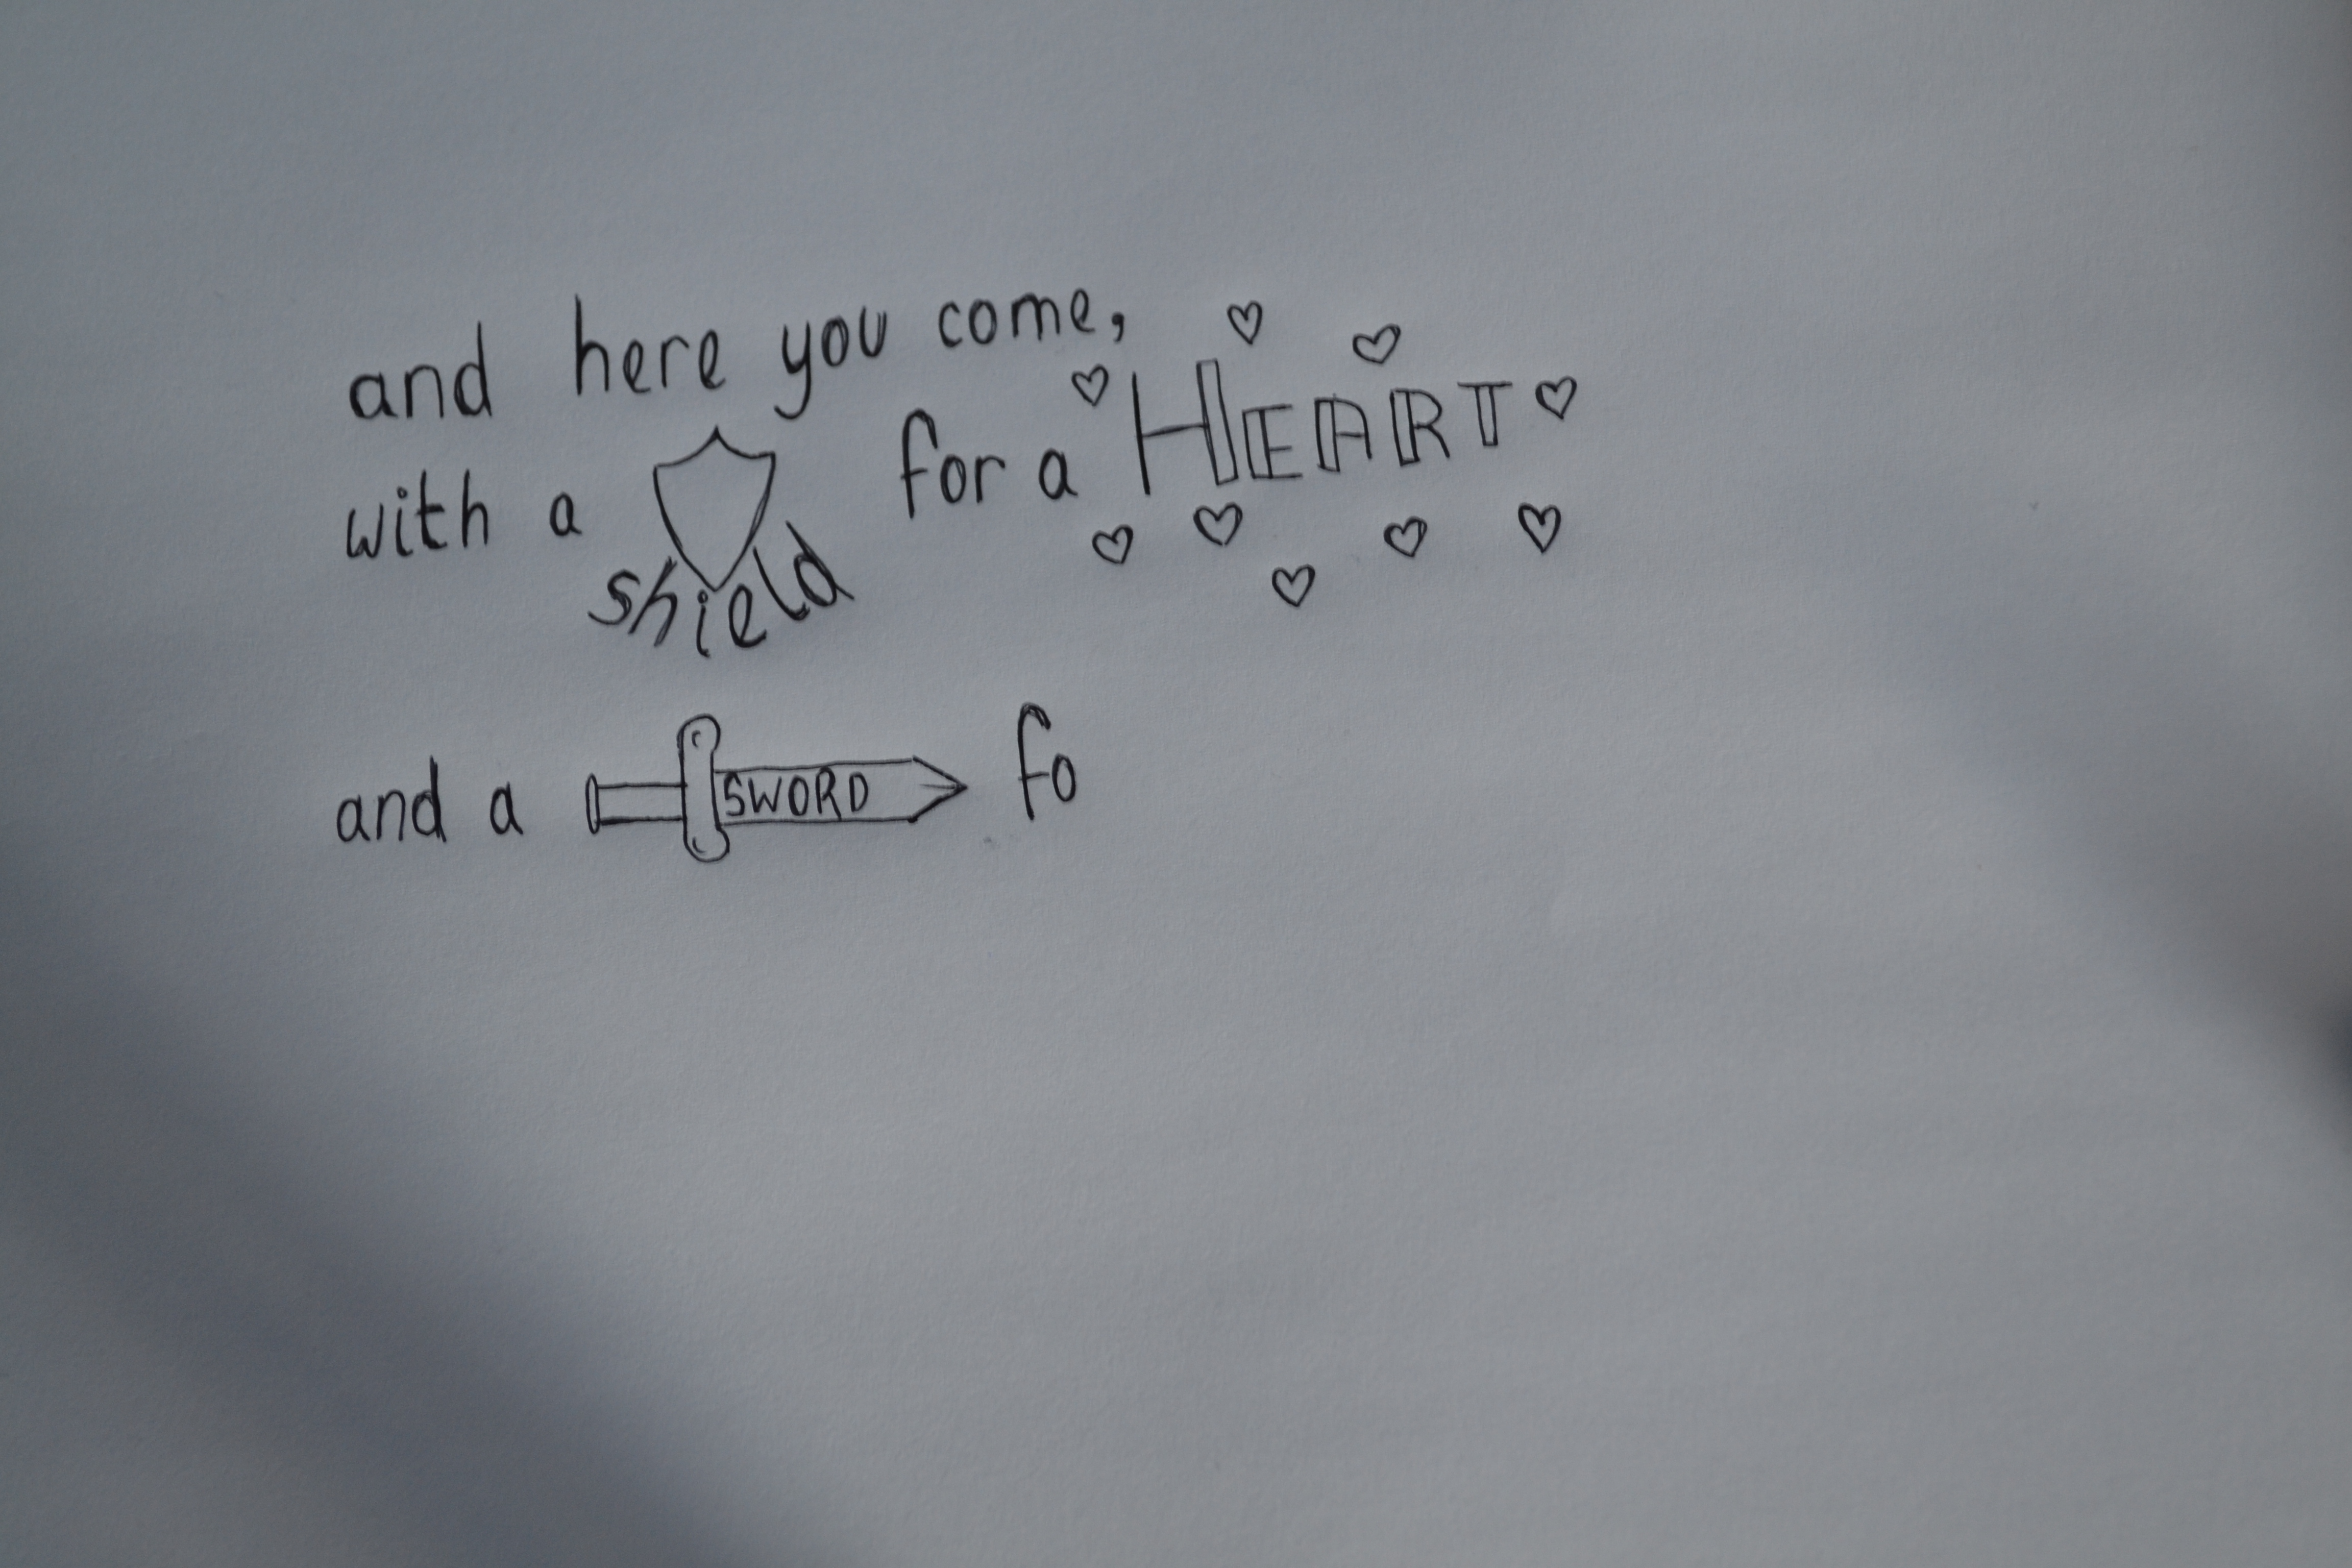 and here you come,
with a shield for a HEART
and a SWORD fo